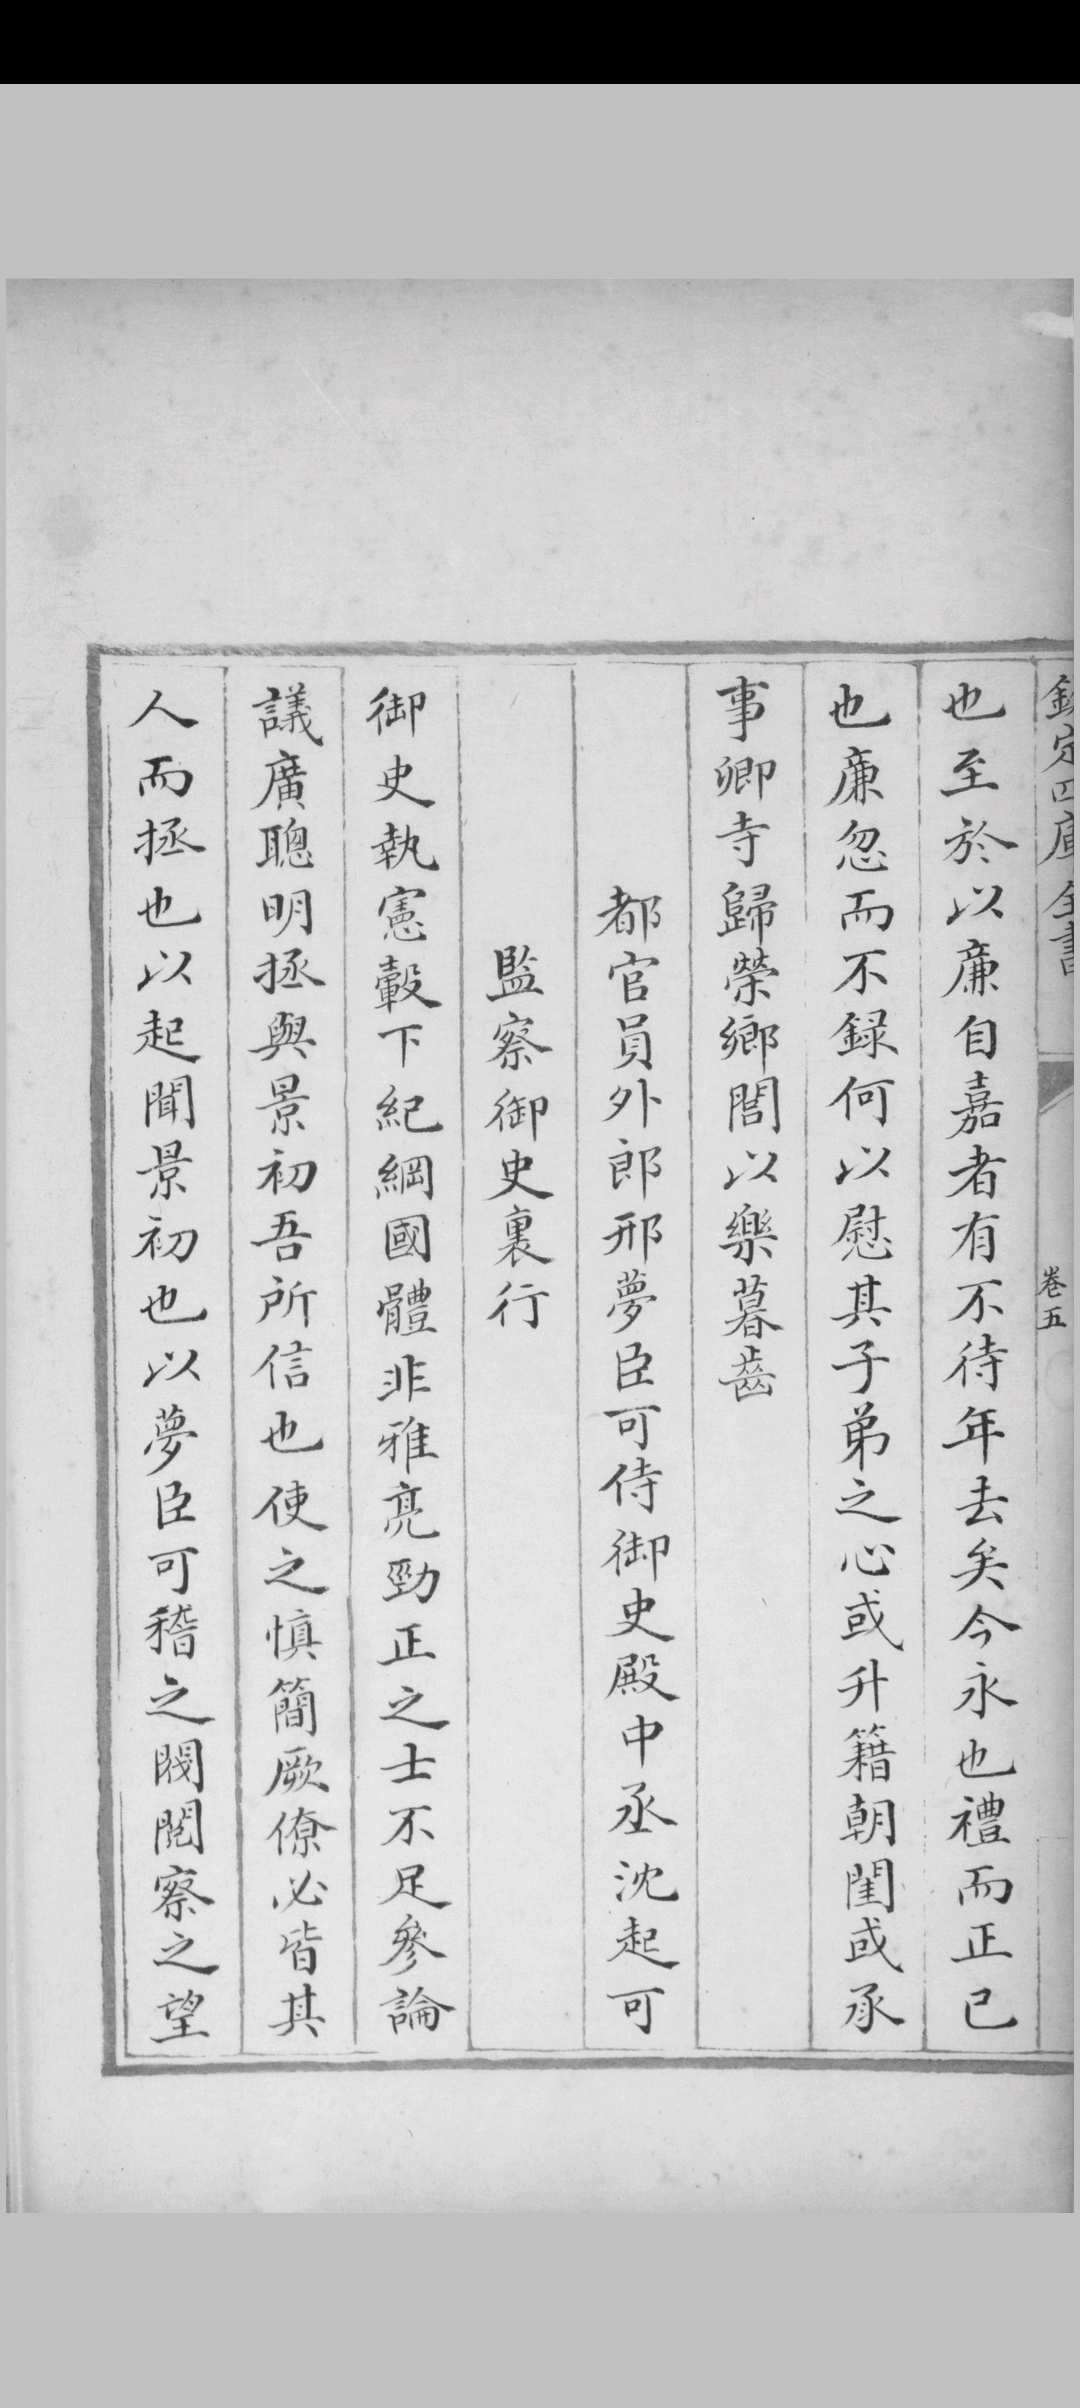 欽定四庫全書
卷五
也至於以廉自嘉者有不待年去矣今永也禮而正已
也廉忽而不録何以慰其子弟之心或升籍朝閨或承
事卿寺歸榮鄉閭以樂暮齒
都官員外郎邢夢臣可侍御史殿中丞沈起可
監察御史裏行
御史執憲轂下紀綱國體非雅亮勁正之士不足參論
議廣聰明拯與景初吾所信也使之慎簡厥僚必皆其
人而拯也以起聞景初也以夢臣可稽之閥閱察之望